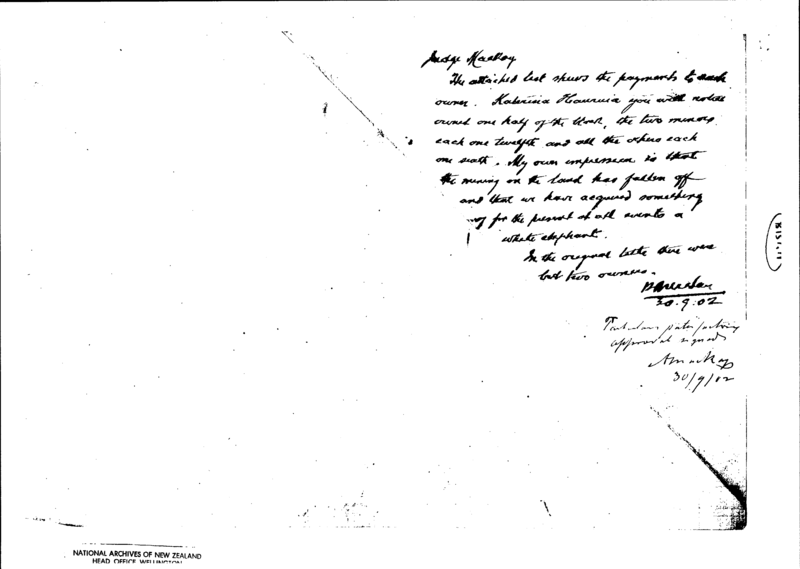 Judge Mackay
The attached list shews the payments to each
owner. Katerina Hauruia you will notice
owned one half of the block, the two minors
each one twelfth and all the others each
one sixth. My own impression is that
the mining on the land has fallen off
and that we have acquired something
of for the present at all events a
white elephant.
In the original title there were
but two owners.
30.9.02
approval signed
AMackay
30/9/02
NATIONAL ARCHIVES OF NEW ZEALAND
HEAD OFFICE WELLINGTON